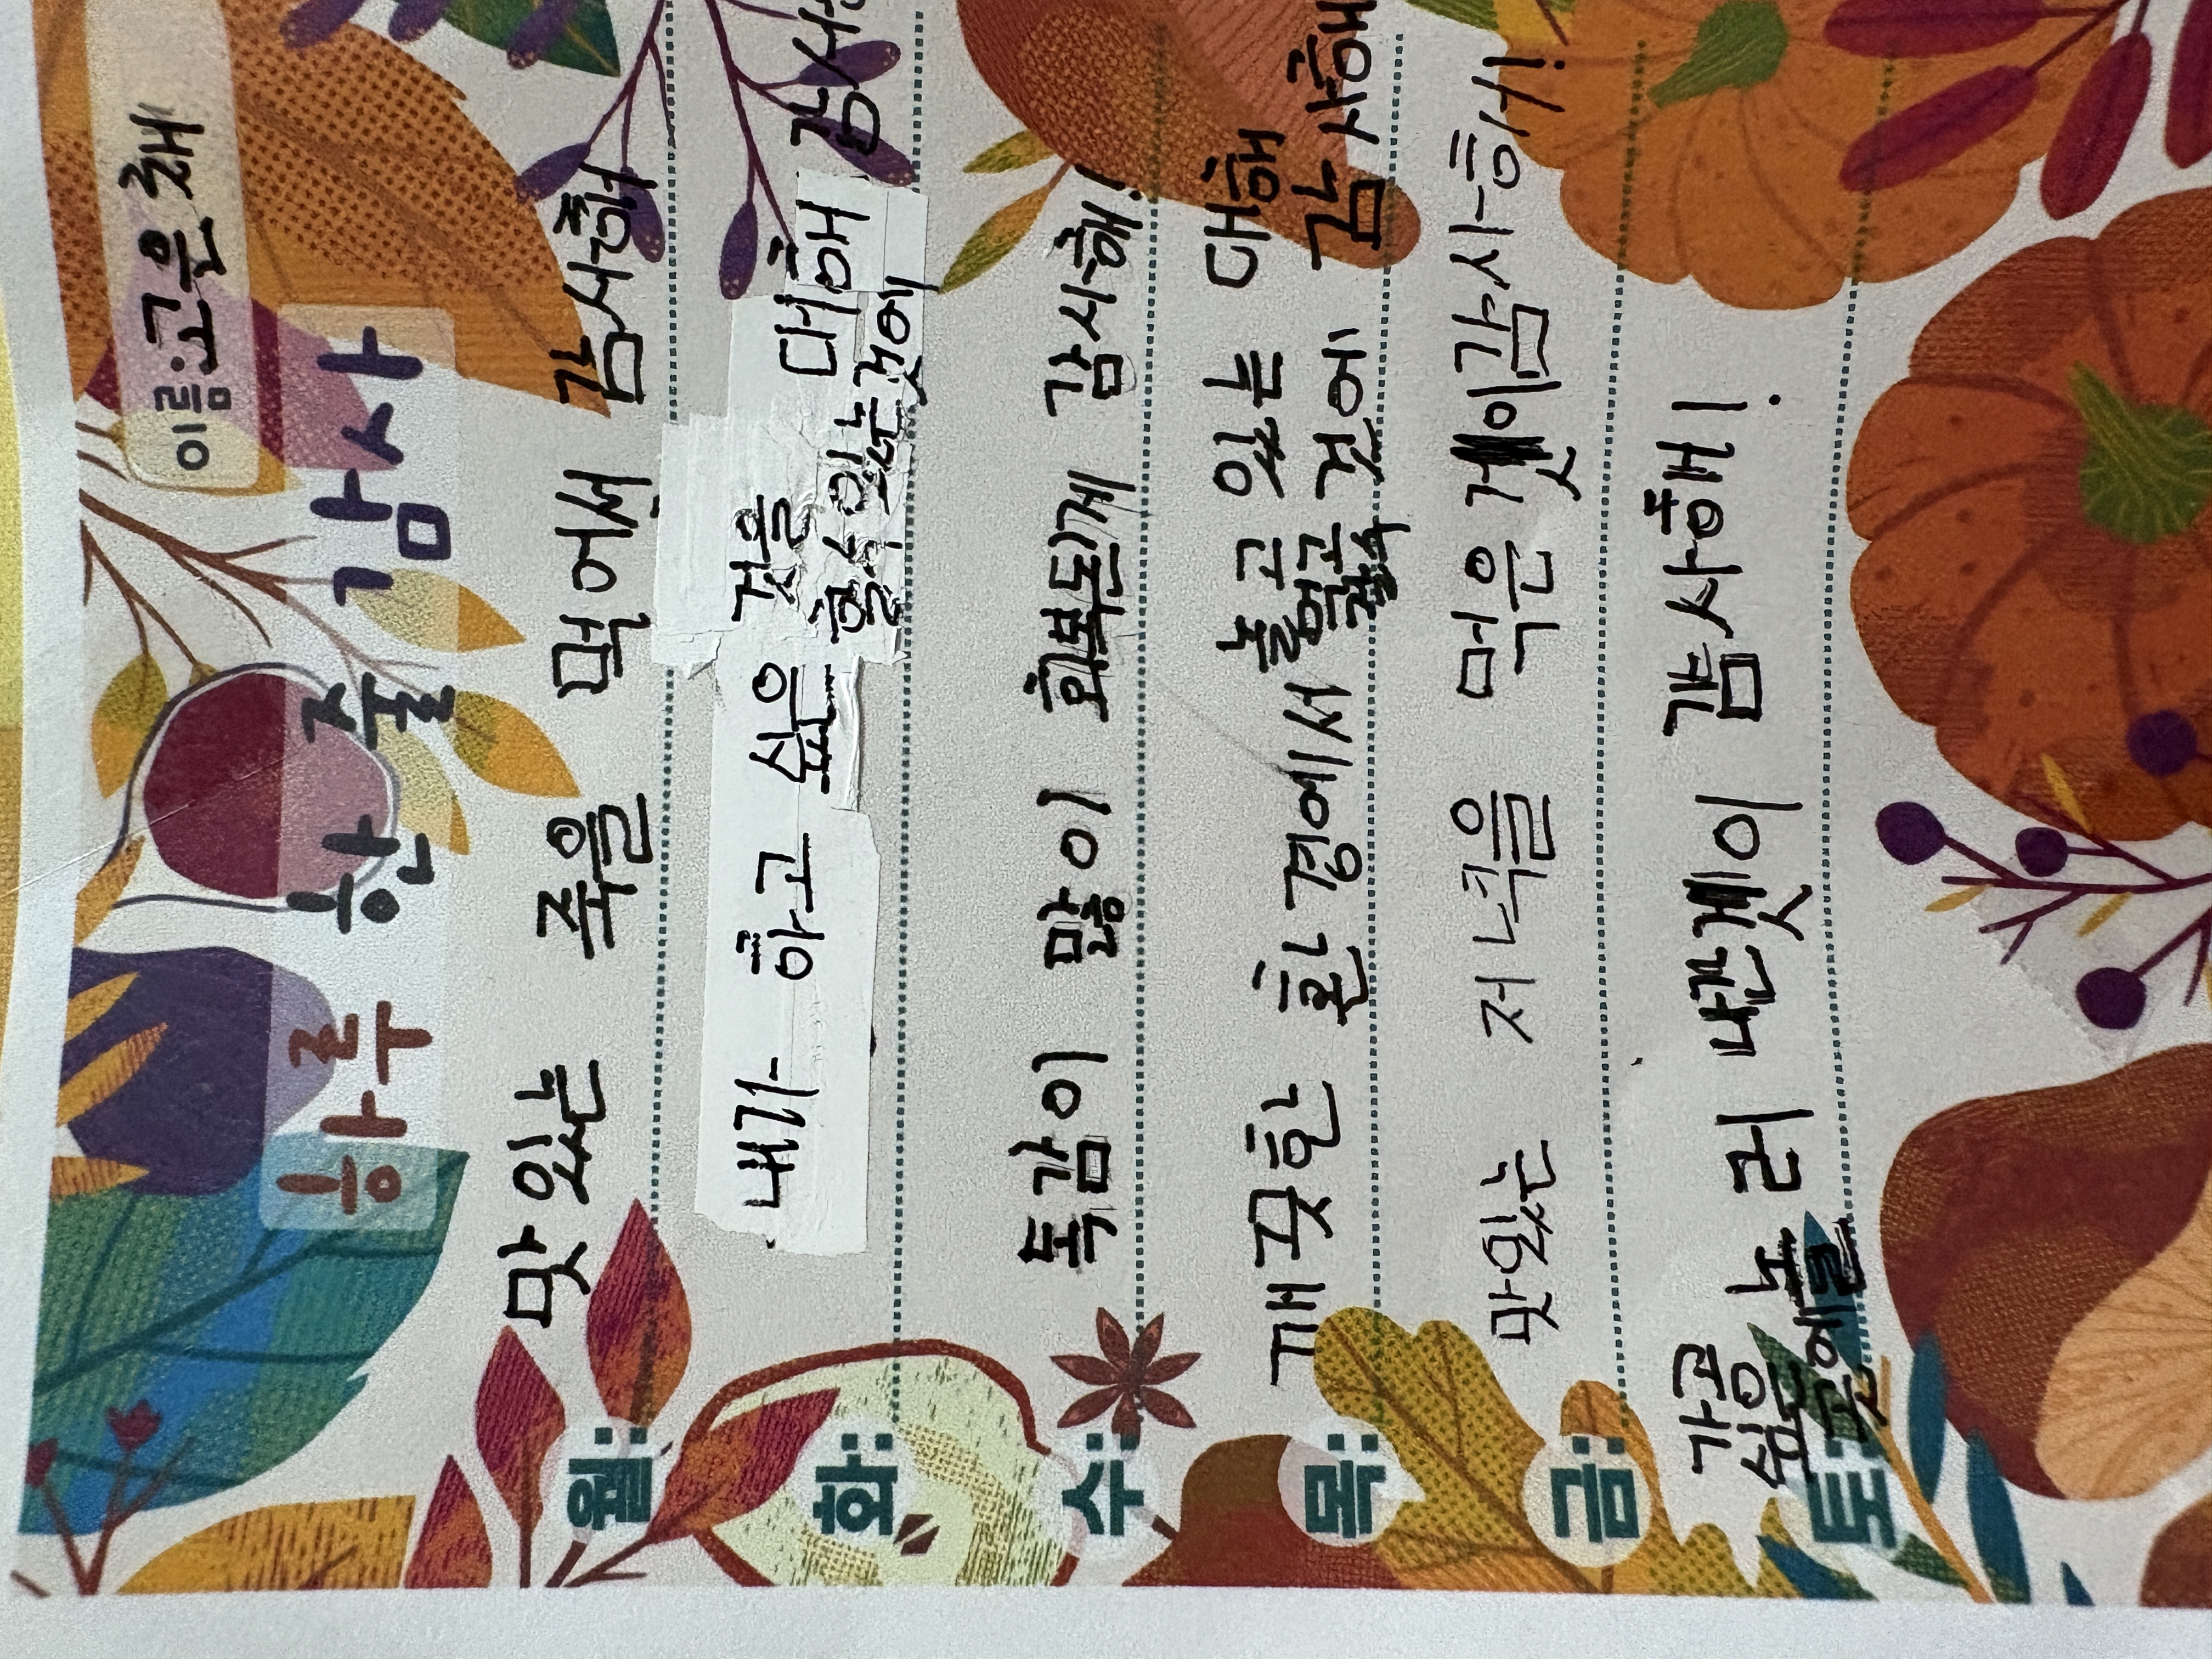 이름:고은채
하루 한 줄 감사
월: 맛있는 죽을 먹어서 감사해
화: 내가 하고 싶은 것을 대해 감사
할 수 있는것에
수: 독감이 많이 회복된게 감사해!
목: 깨끗한 환경에서 놀고 있는 대해
먹고 것에 감사해
금: 맛있는 저녁을 먹은 것이감사해!
토: 가고 싶은 곳에 놀러 나간것이 감사해!